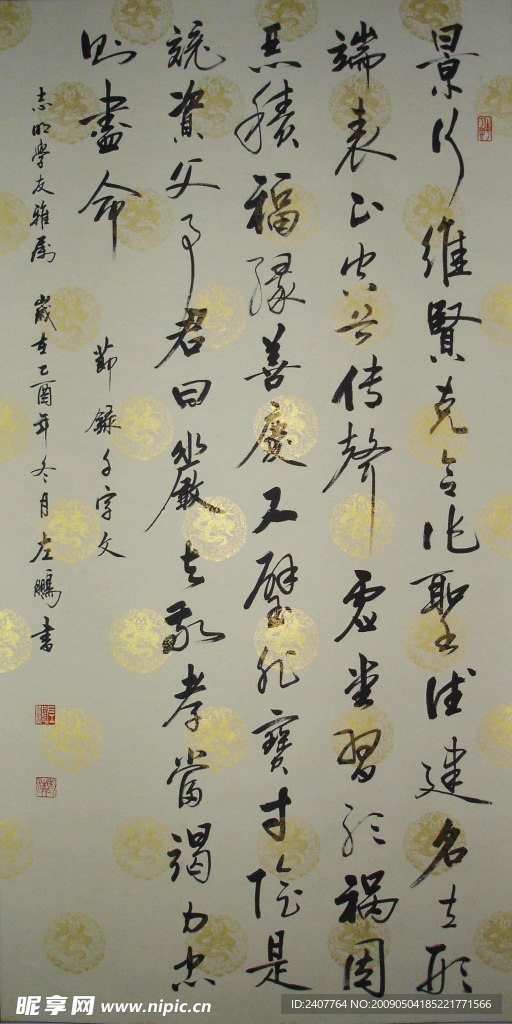 景行維賢克念作聖德建名立形
端表正空谷传聲虚堂習聽禍因
恶積福緣善慶尺璧非寶寸陰是
競資父事君曰嚴与敬孝當竭力忠
則盡命
節錄千字文
志明學友雅属 歲在乙酉年冬月左鵬書
昵享网 www.nipic.cn
ID:2407764 NO:20090504185221771566